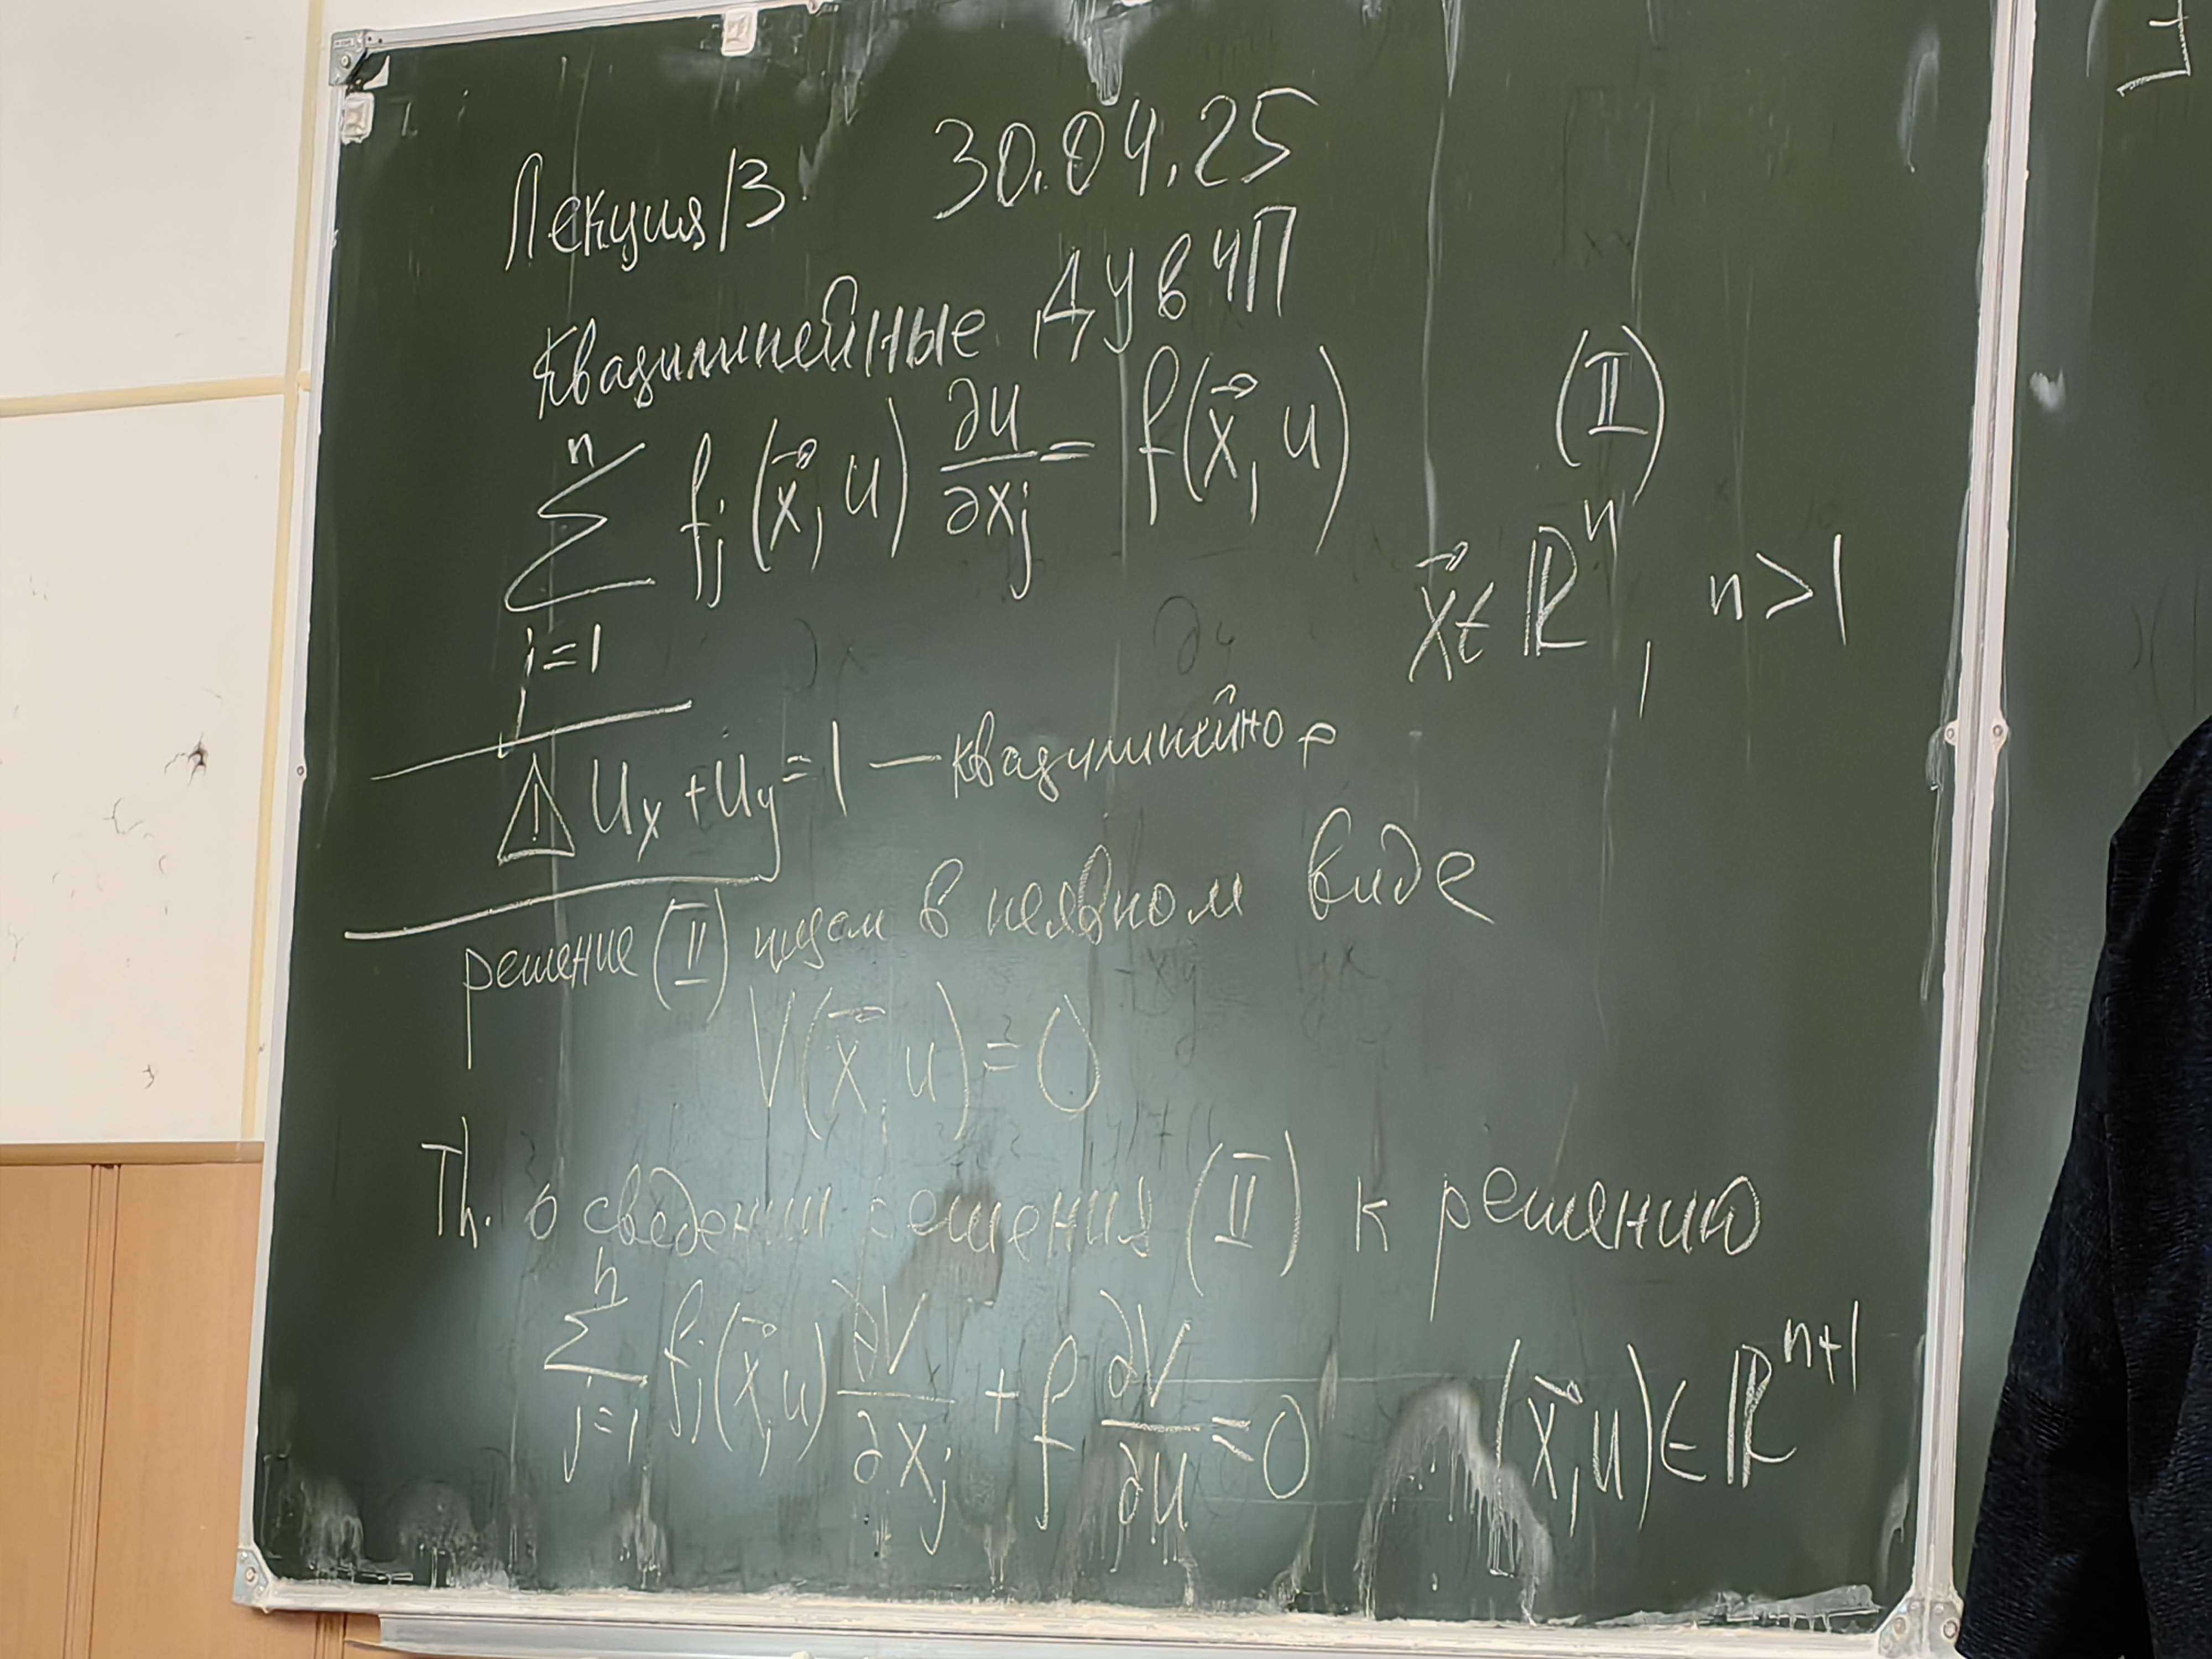 Лекция 13 30.04.25
Квазилинейные ДУ в ЧП
∑_{j=1}^{n} f_j(x⃗, u) ∂u/∂x_j = f(x⃗, u) (II)
x⃗ ∈ ℝⁿ, n > 1
⚠ u_x + u_y = 1 — квазилинейное
решение (II) ищем в неявном виде
V(x⃗, u) = 0
Th. о сведении решения (II) к решению
∑_{j=1}^{n} f_j(x⃗, u) ∂V/∂x_j + f ∂V/∂u = 0 (x⃗, u) ∈ ℝ^{n+1}